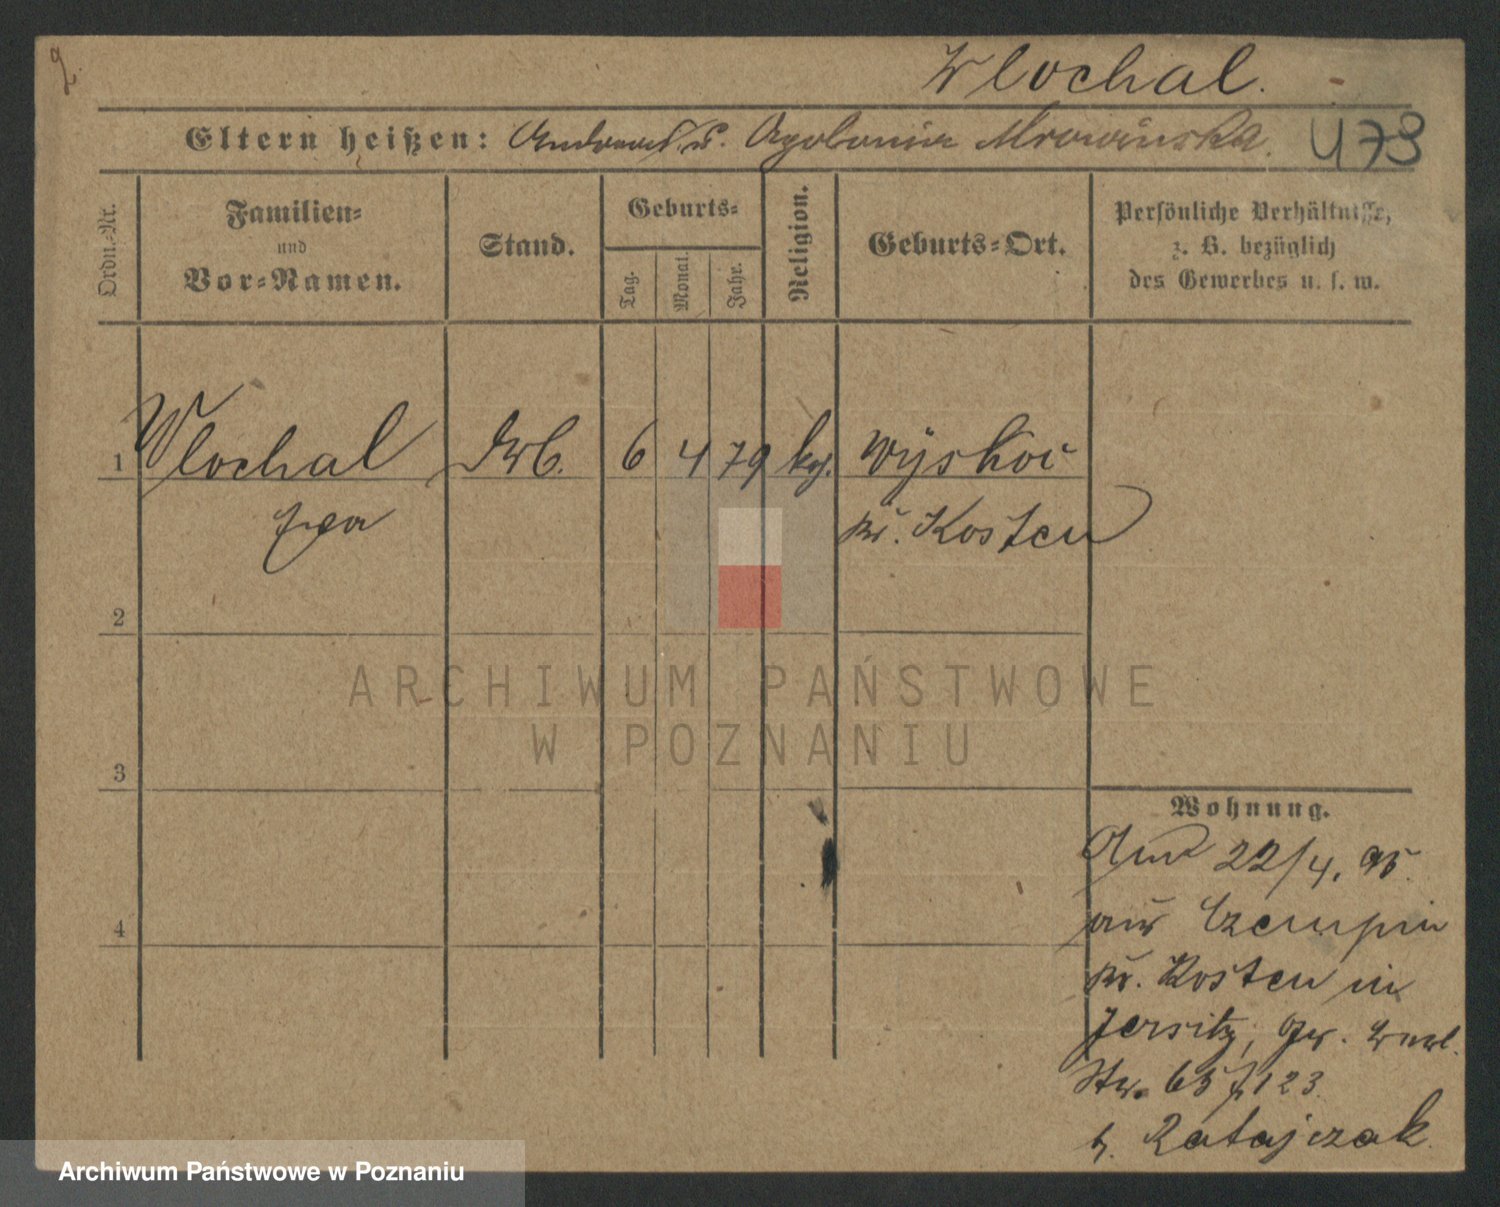 Wlochal.
Eltern heißen: Andreas u. Apolonia Mrowinska.
Ordn.-Nr.
Familien-
und
Vor-Namen.
Stand.
Geburts-
Tag.
Monat.
Jahr.
Religion.
Geburts-Ort.
Persönliche Verhältnisse,
z. B. bezüglich
des Gewerbes u. s. w.
1 Wlochal Arb. 6 4 79 kath. Wyskoc
Kr. Kosten
2
3
4
Wohnung.
Am 22/4. 95.
aus Czempin
Kr. Kosten in
Jersitz, Gr.
Str. 65 123
b. Ratajczak
ARCHIWUM PAŃSTWOWE
W POZNANIU
Archiwum Państwowe w Poznaniu